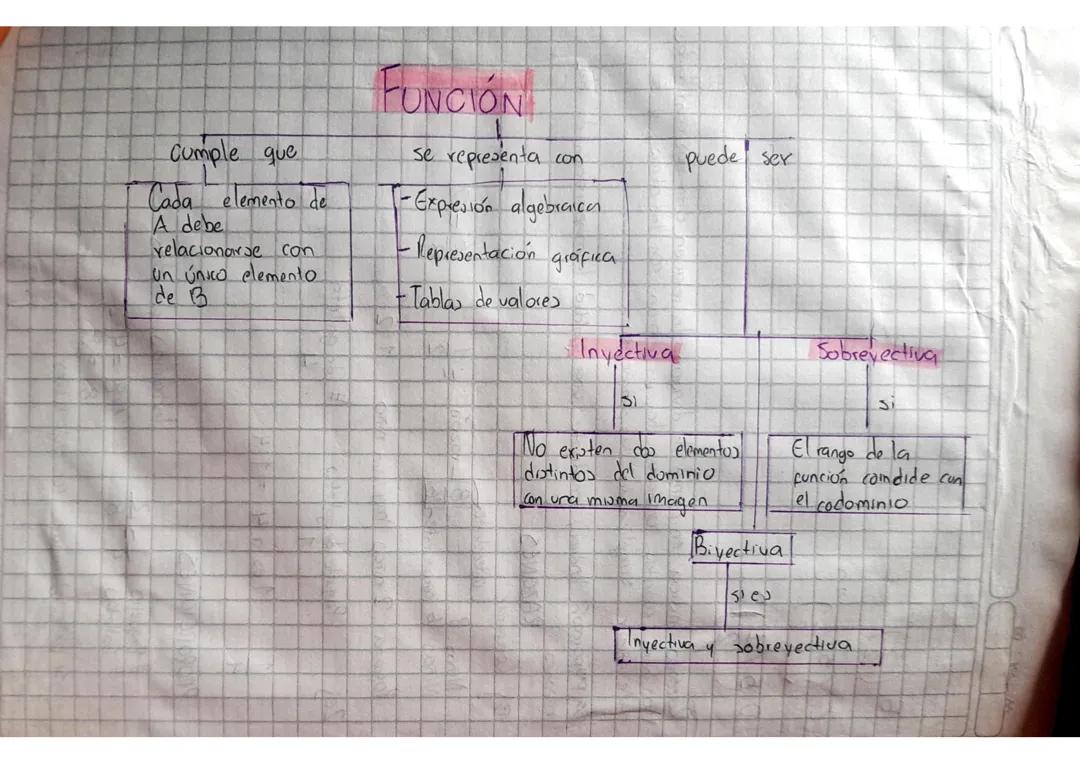 FUNCIÓN
cumple que
se representa con
puede ser
Cada elemento de
A debe
relacionarse con
un único elemento
de B
- Expresión algebraica
- Representación gráfica
- Tablas de valores
Inyectiva
Sobreyectiva
si
si
No existen dos elementos
distintos del dominio
con una misma imagen
El rango de la
función coindide con
el codominio
Biyectiva
si es
Inyectiva y sobreyectiva